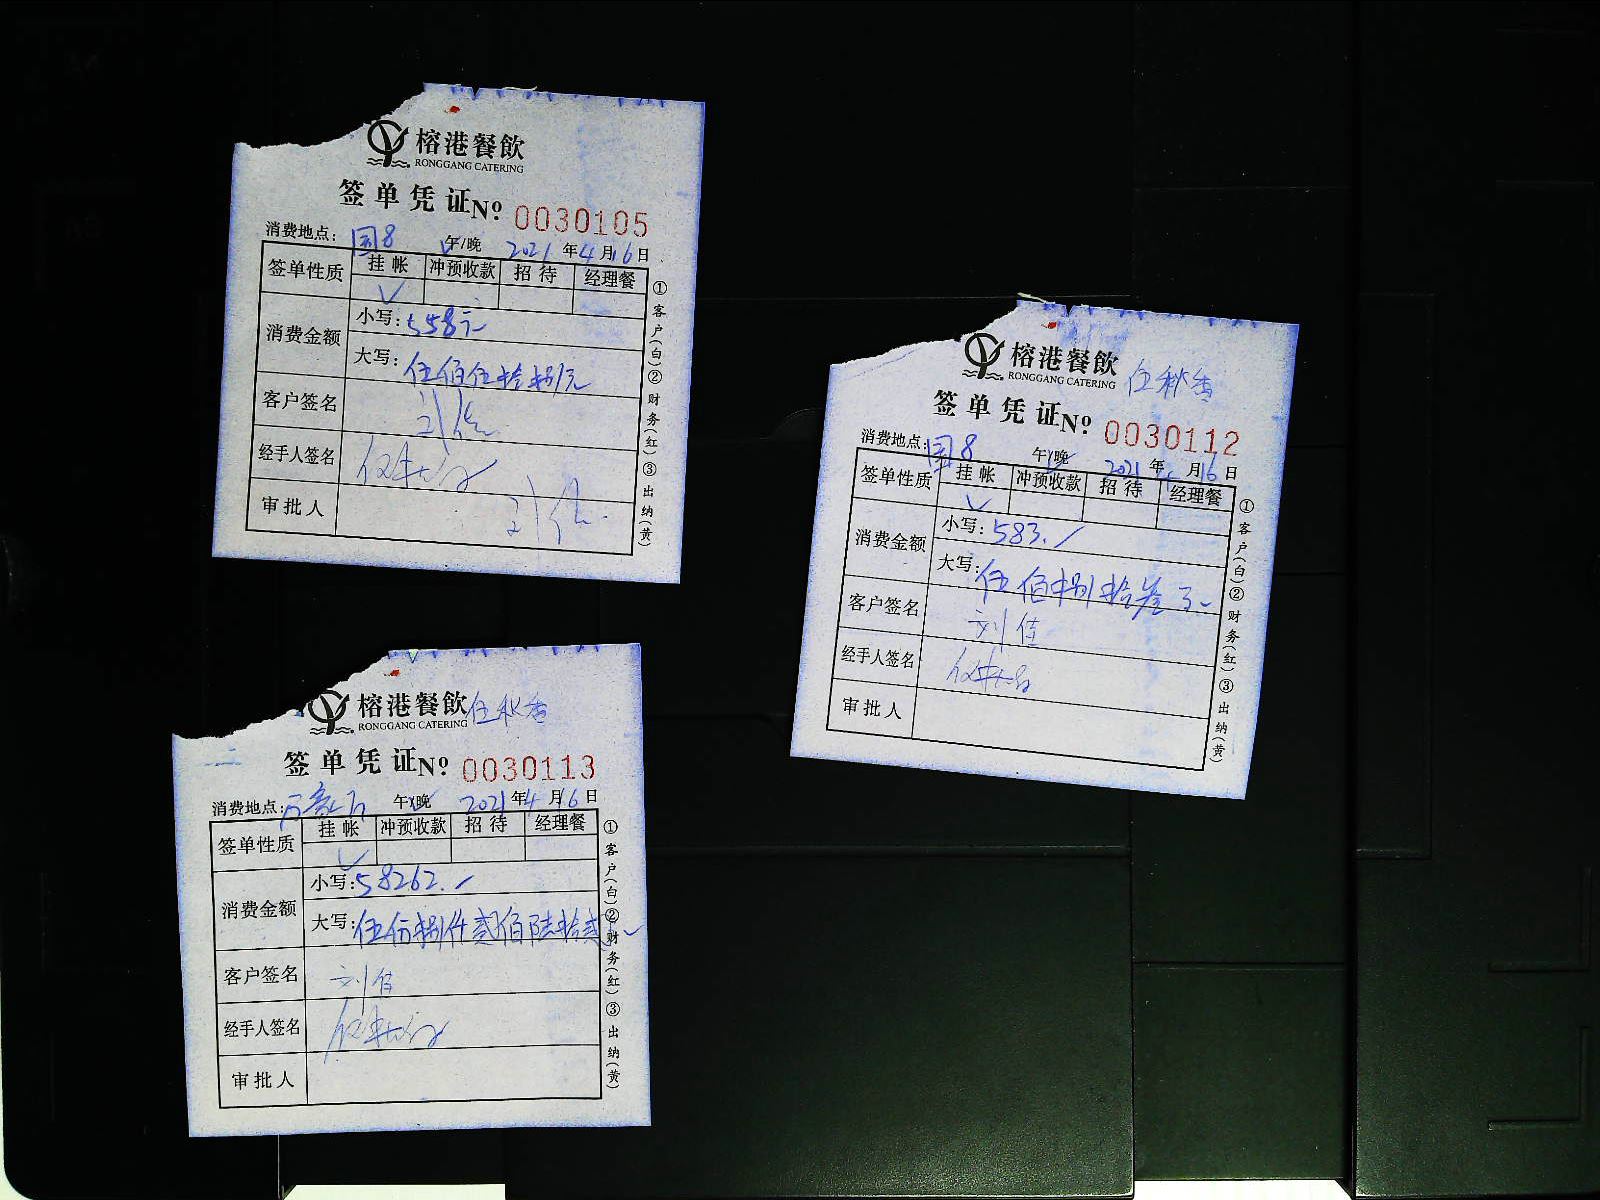 榕港餐飲
RONGGANG CATERING
签单凭证 Nº 0030105
消费地点：国8 午/晚 2021年4月16日
签单性质 挂帐 冲预收款 招待 经理餐
✓
消费金额 小写：558元
大写：伍佰伍拾捌元
客户签名 刘佳
经手人签名
审批人 刘佳
①客户(白)②财务(红)③出纳(黄)
榕港餐飲 伍秋香
RONGGANG CATERING
签单凭证 Nº 0030112
消费地点：国8 午/晚 2021年4月16日
签单性质 挂帐 冲预收款 招待 经理餐
✓
消费金额 小写：583.
大写：伍佰捌拾叁元
客户签名 刘佳
经手人签名
审批人
①客户(白)②财务(红)③出纳(黄)
榕港餐飲 伍秋香
RONGGANG CATERING
签单凭证 Nº 0030113
消费地点： 午/晚 2021年4月16日
签单性质 挂帐 冲预收款 招待 经理餐
✓
消费金额 小写：58262.
大写：伍万捌仟贰佰陆拾贰
客户签名 刘佳
经手人签名
审批人
①客户(白)②财务(红)③出纳(黄)